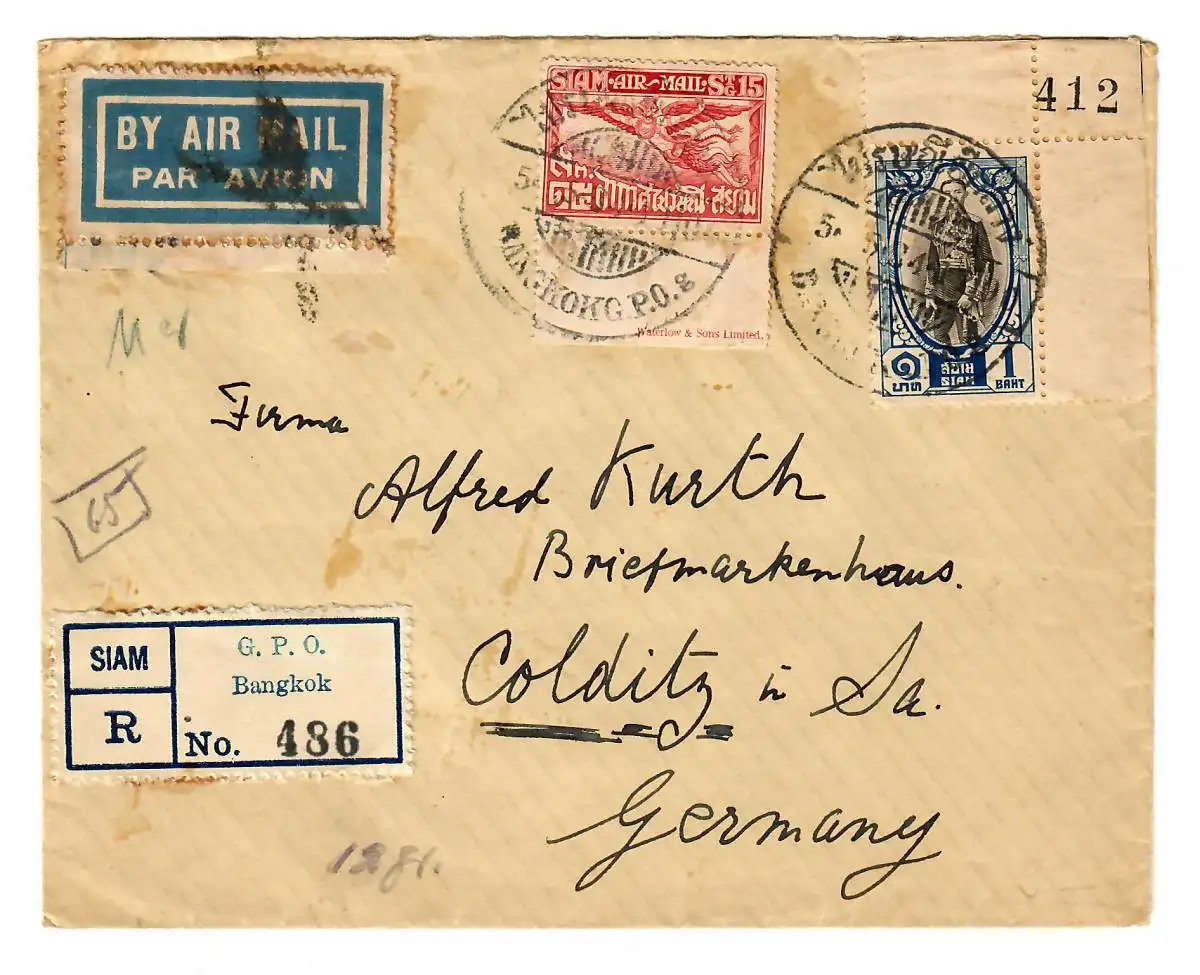 BY AIR MAIL
PAR AVION
SIAM·AIR-MAIL·St. 15
ไปรษณีย์·สยาม
BANGKOK G.P.O. 8
Waterlow & Sons Limited,
412
๑ สยาม 1
บาท SIAM BAHT
65
Firma
Alfred Kurth
Briefmarkenhaus.
Colditz in Sa.
Germany
SIAM
R
G. P. O.
Bangkok
No. 486
12 gr.